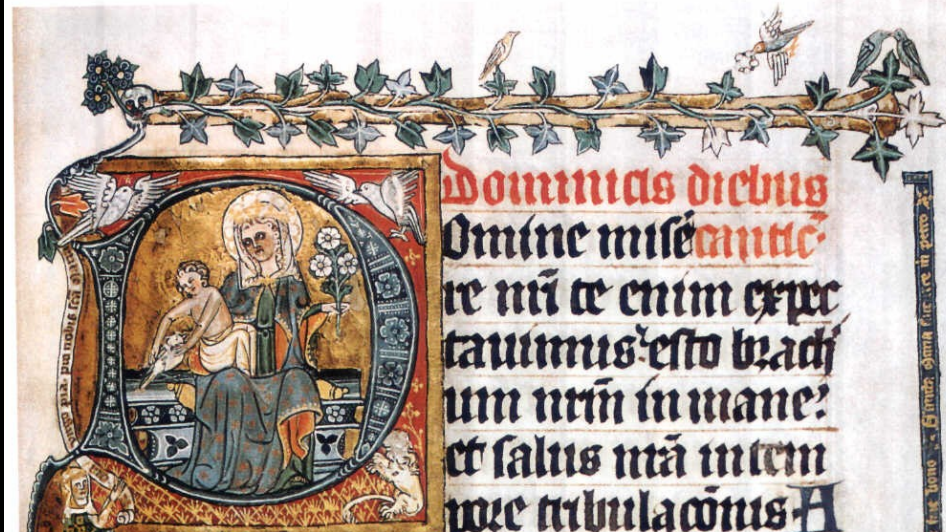 Dominicis diebus
Omine miserē cantic̄
re nr̄i te enim expec
tauimus: esto brach
ium nr̄m in mane:
et salus nr̄a in tem
pore tribulac̄onis A
virgo pia pro nobis